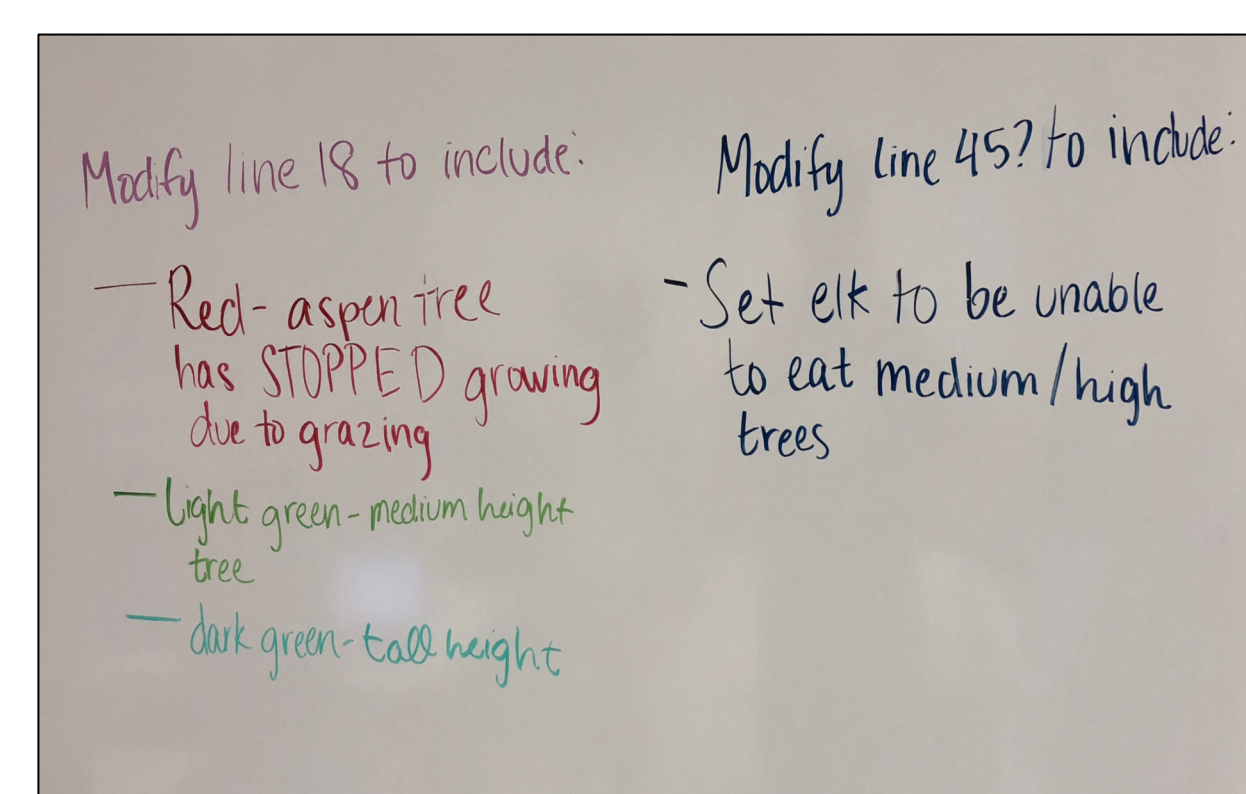 Modify line 18 to include:
— Red- aspen tree
has STOPPED growing
due to grazing
— light green - medium height
tree
— dark green - tall height
Modify line 45? to include:
- Set elk to be unable
to eat medium/high
trees